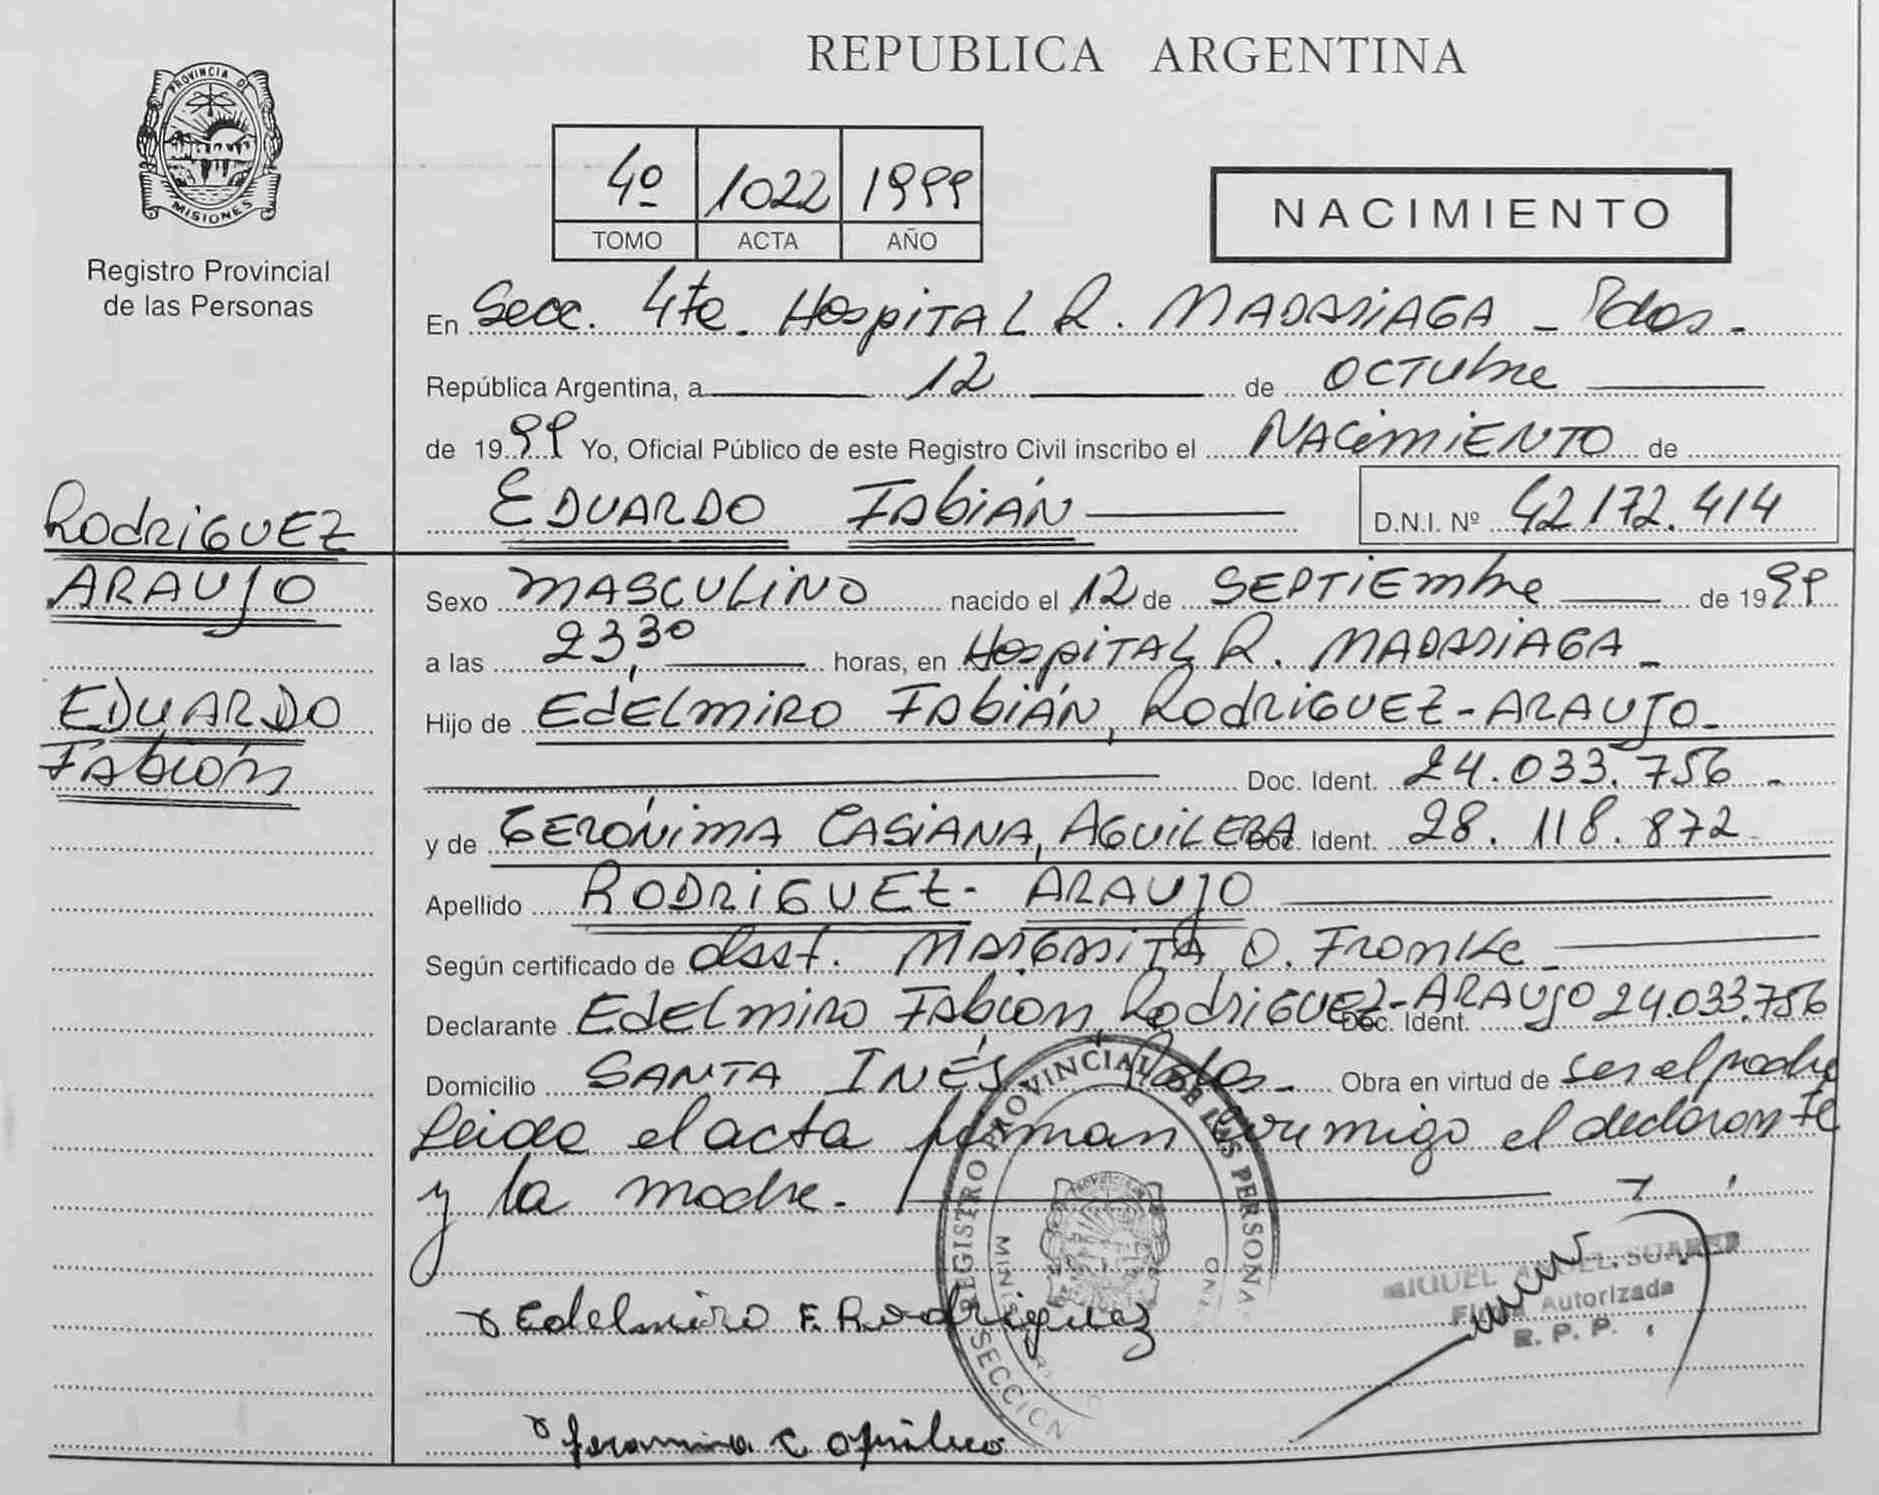 REPUBLICA ARGENTINA
PROVINCIA DE
MISIONES
Registro Provincial
de las Personas
4º 1022 1999
TOMO ACTA AÑO
NACIMIENTO
En Secc. 4ta. Hospital R. MADARIAGA - Pdas.
República Argentina, a 12 de OCTubre
de 1999 Yo, Oficial Público de este Registro Civil inscribo el NACimiENTO de
EDUARDO FAbiÁN D.N.I. Nº 42.172.414
RodRiGUEZ
ARAUJO
EDUARDO
FAbián
Sexo MASCULiNO nacido el 12 de SEPTiEmbre de 1999
a las 23,30 horas, en HospiTAL R. MADARiAGA -
Hijo de EdELmiRO FAbiÁN, RodRiGUEZ-ARAUJO-
Doc. Ident. 24.033.756 -
y de GERÓNimA CASiANA, AGUiLERA Doc. Ident. 28.118.872
Apellido RODRiGUEZ- ARAUJO
Según certificado de obst. MARGARiTA O. Fronke -
Declarante EdELmiRO FAbian, RodRiGUEZ-ARAUJO Doc. Ident. 24.033.756
Domicilio SANTA INÉS Pdas.- Obra en virtud de ser el padre
Leida el acta firman conmigo el declarante
y la madre.
REGISTRO PROVINCIAL DE LAS PERSONAS
SECCION
MIGUEL ANGEL SUAREZ
Firma Autorizada
R. P. P.
Edelmiro F. Rodriguez